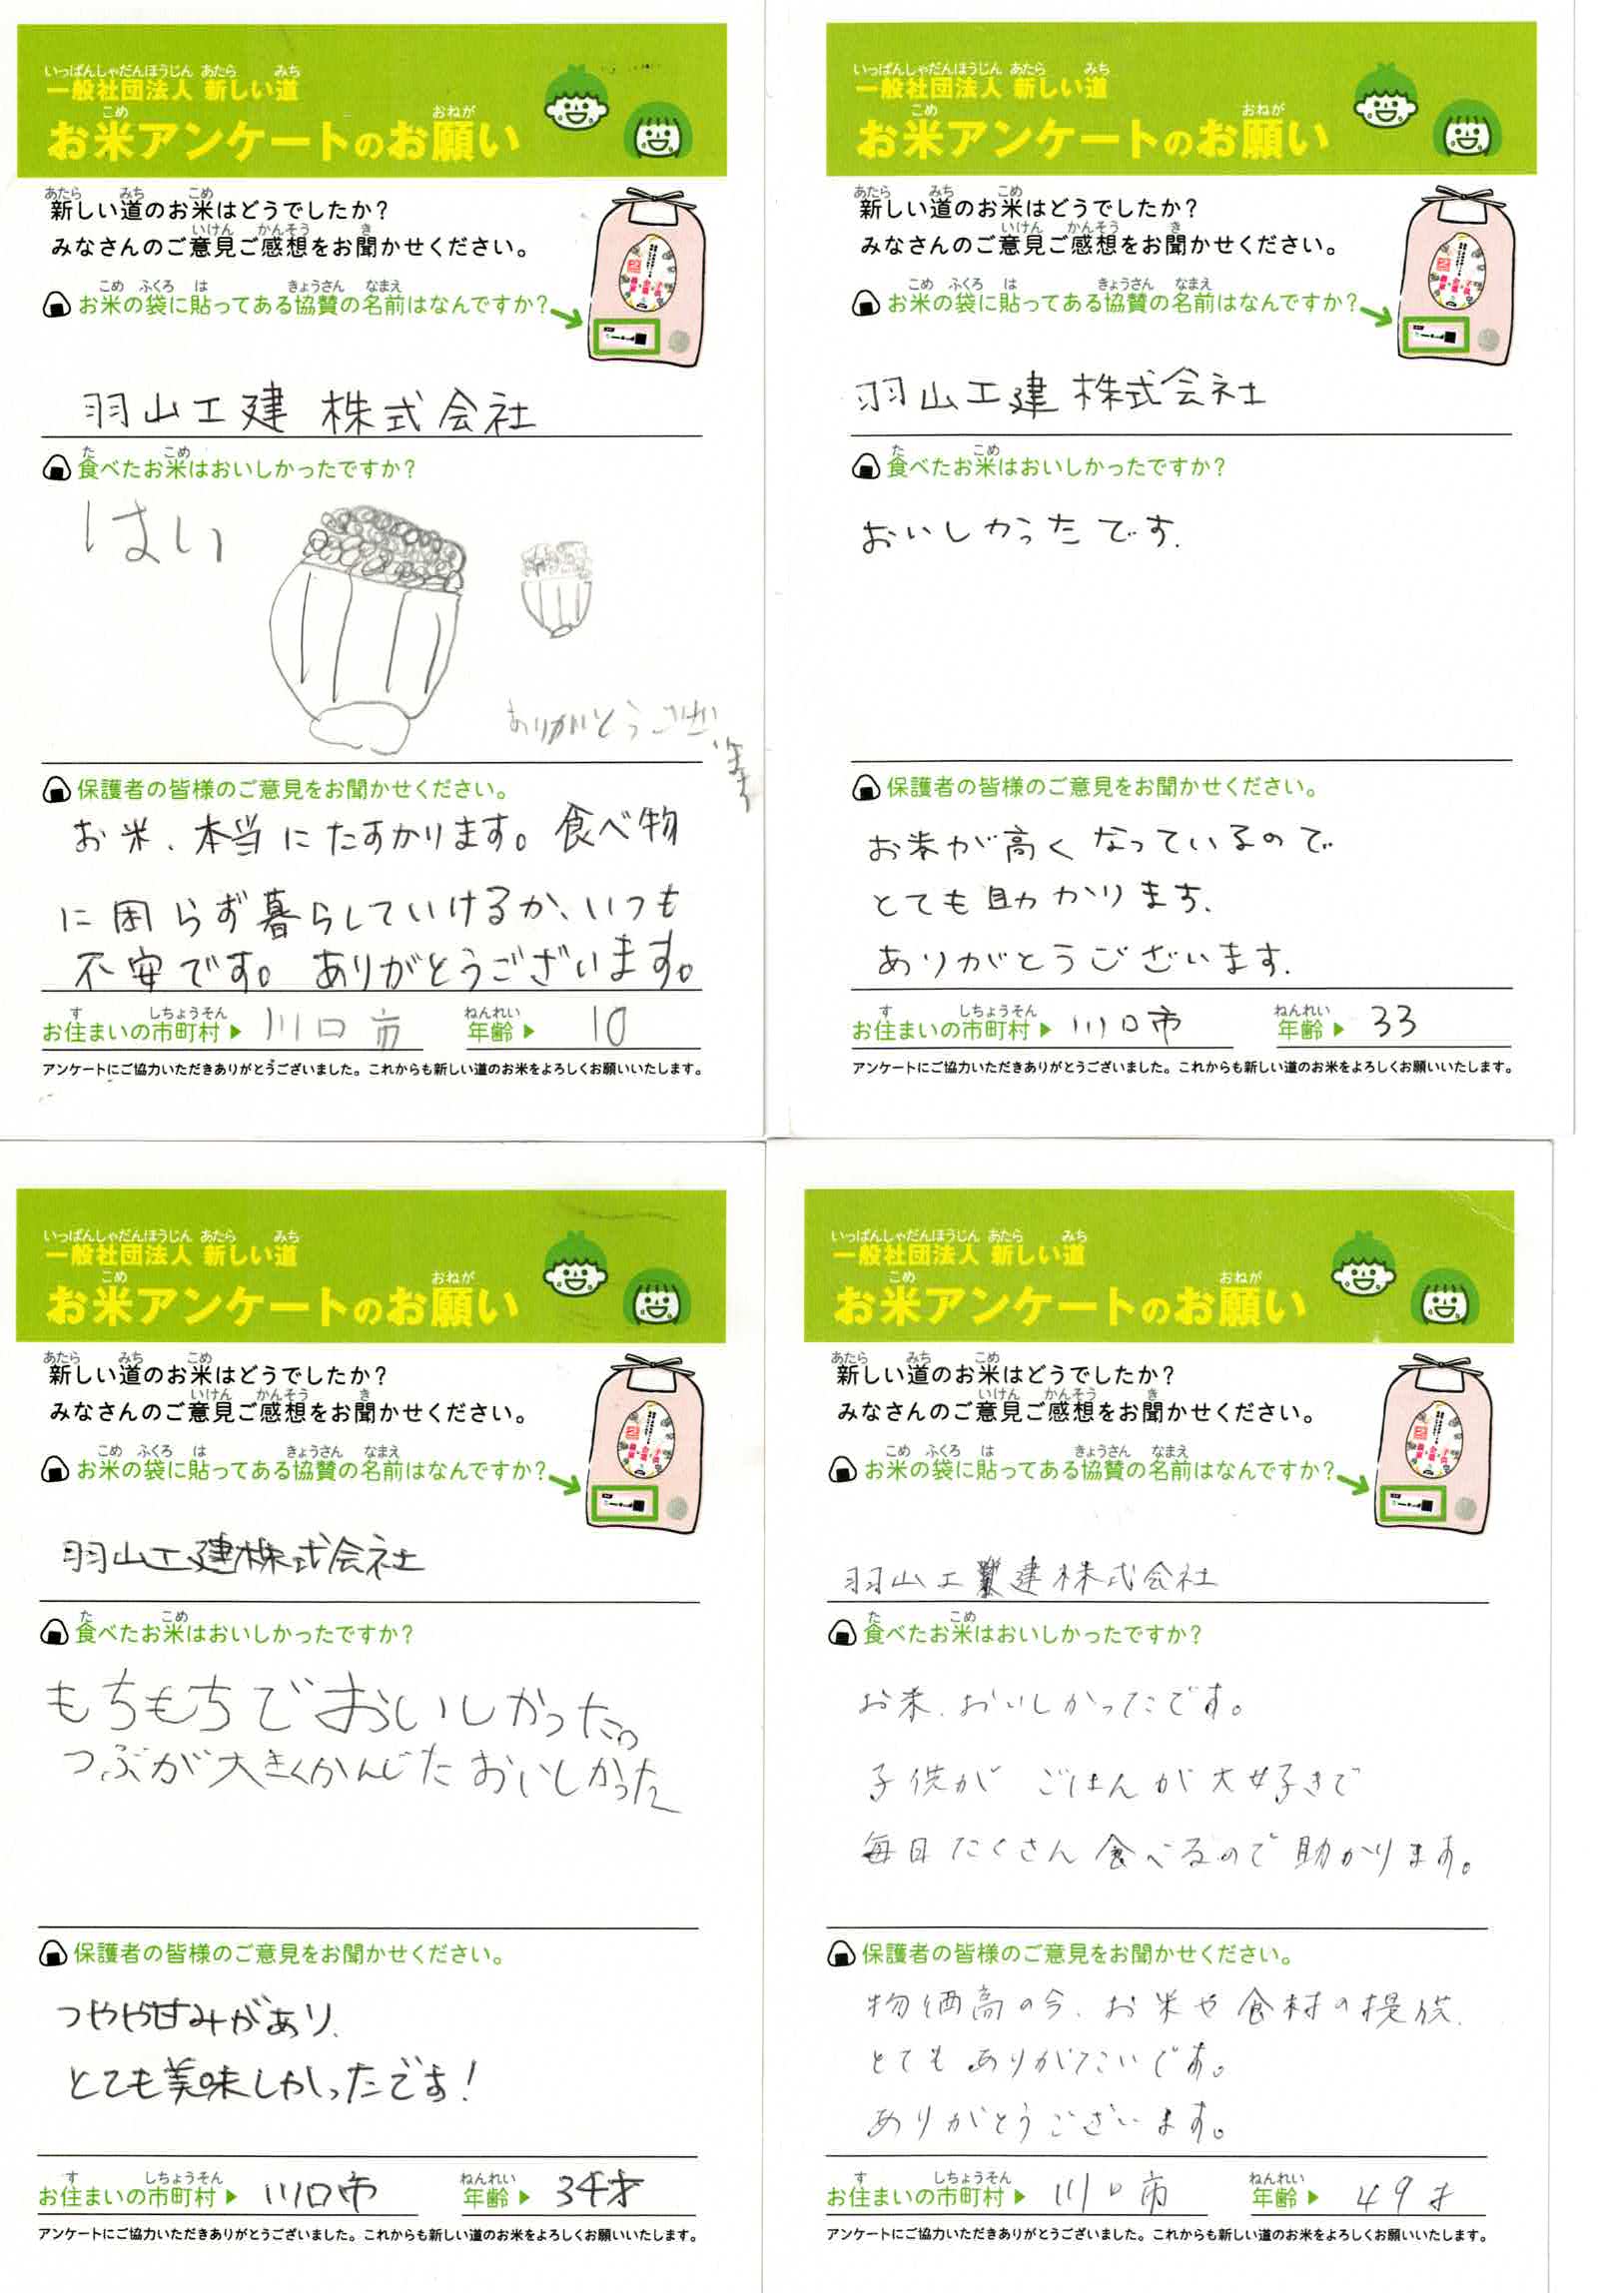 いっぱんしゃだんほうじん あたら みち
一般社団法人 新しい道
こめ おねが
お米アンケートのお願い
あたら みち こめ
新しい道のお米はどうでしたか?
いけん かんそう き
みなさんのご意見ご感想をお聞かせください。
こめ ふくろ は きょうさん なまえ
お米の袋に貼ってある協賛の名前はなんですか?
羽山工建 株式会社
た こめ
食べたお米はおいしかったですか?
はい
ありがとうござい
います
保護者の皆様のご意見をお聞かせください。
お米、本当にたすかります。食べ物
に困らず暮らしていけるか、いつも
不安です。ありがとうございます。
す しちょうそん ねんれい
お住まいの市町村▶ 川口市 年齢▶ 10
アンケートにご協力いただきありがとうございました。これからも新しい道のお米をよろしくお願いいたします。
いっぱんしゃだんほうじん あたら みち
一般社団法人 新しい道
こめ おねが
お米アンケートのお願い
あたら みち こめ
新しい道のお米はどうでしたか?
いけん かんそう き
みなさんのご意見ご感想をお聞かせください。
こめ ふくろ は きょうさん なまえ
お米の袋に貼ってある協賛の名前はなんですか?
羽山工建 株式会社
た こめ
食べたお米はおいしかったですか?
おいしかったです.
保護者の皆様のご意見をお聞かせください。
お米が高くなっているので
とても助かります.
ありがとうございます.
す しちょうそん ねんれい
お住まいの市町村▶ 川口市 年齢▶ 33
アンケートにご協力いただきありがとうございました。これからも新しい道のお米をよろしくお願いいたします。
いっぱんしゃだんほうじん あたら みち
一般社団法人 新しい道
こめ おねが
お米アンケートのお願い
あたら みち こめ
新しい道のお米はどうでしたか?
いけん かんそう き
みなさんのご意見ご感想をお聞かせください。
こめ ふくろ は きょうさん なまえ
お米の袋に貼ってある協賛の名前はなんですか?
羽山工建株式会社
た こめ
食べたお米はおいしかったですか?
もちもちでおいしかった。
つぶが大きくかんじた おいしかった
保護者の皆様のご意見をお聞かせください。
つやや甘みがあり、
とても美味しかったです!
す しちょうそん ねんれい
お住まいの市町村▶ 川口市 年齢▶ 34才
アンケートにご協力いただきありがとうございました。これからも新しい道のお米をよろしくお願いいたします。
いっぱんしゃだんほうじん あたら みち
一般社団法人 新しい道
こめ おねが
お米アンケートのお願い
あたら みち こめ
新しい道のお米はどうでしたか?
いけん かんそう き
みなさんのご意見ご感想をお聞かせください。
こめ ふくろ は きょうさん なまえ
お米の袋に貼ってある協賛の名前はなんですか?
羽山工建株式会社
た こめ
食べたお米はおいしかったですか?
お米、おいしかったです。
子供が ごはんが大好きで
毎日たくさん食べるので助かります。
保護者の皆様のご意見をお聞かせください。
物価高の今、お米や食材の提供、
とてもありがたいです。
ありがとうございます。
す しちょうそん ねんれい
お住まいの市町村▶ 川口市 年齢▶ 49才
アンケートにご協力いただきありがとうございました。これからも新しい道のお米をよろしくお願いいたします。